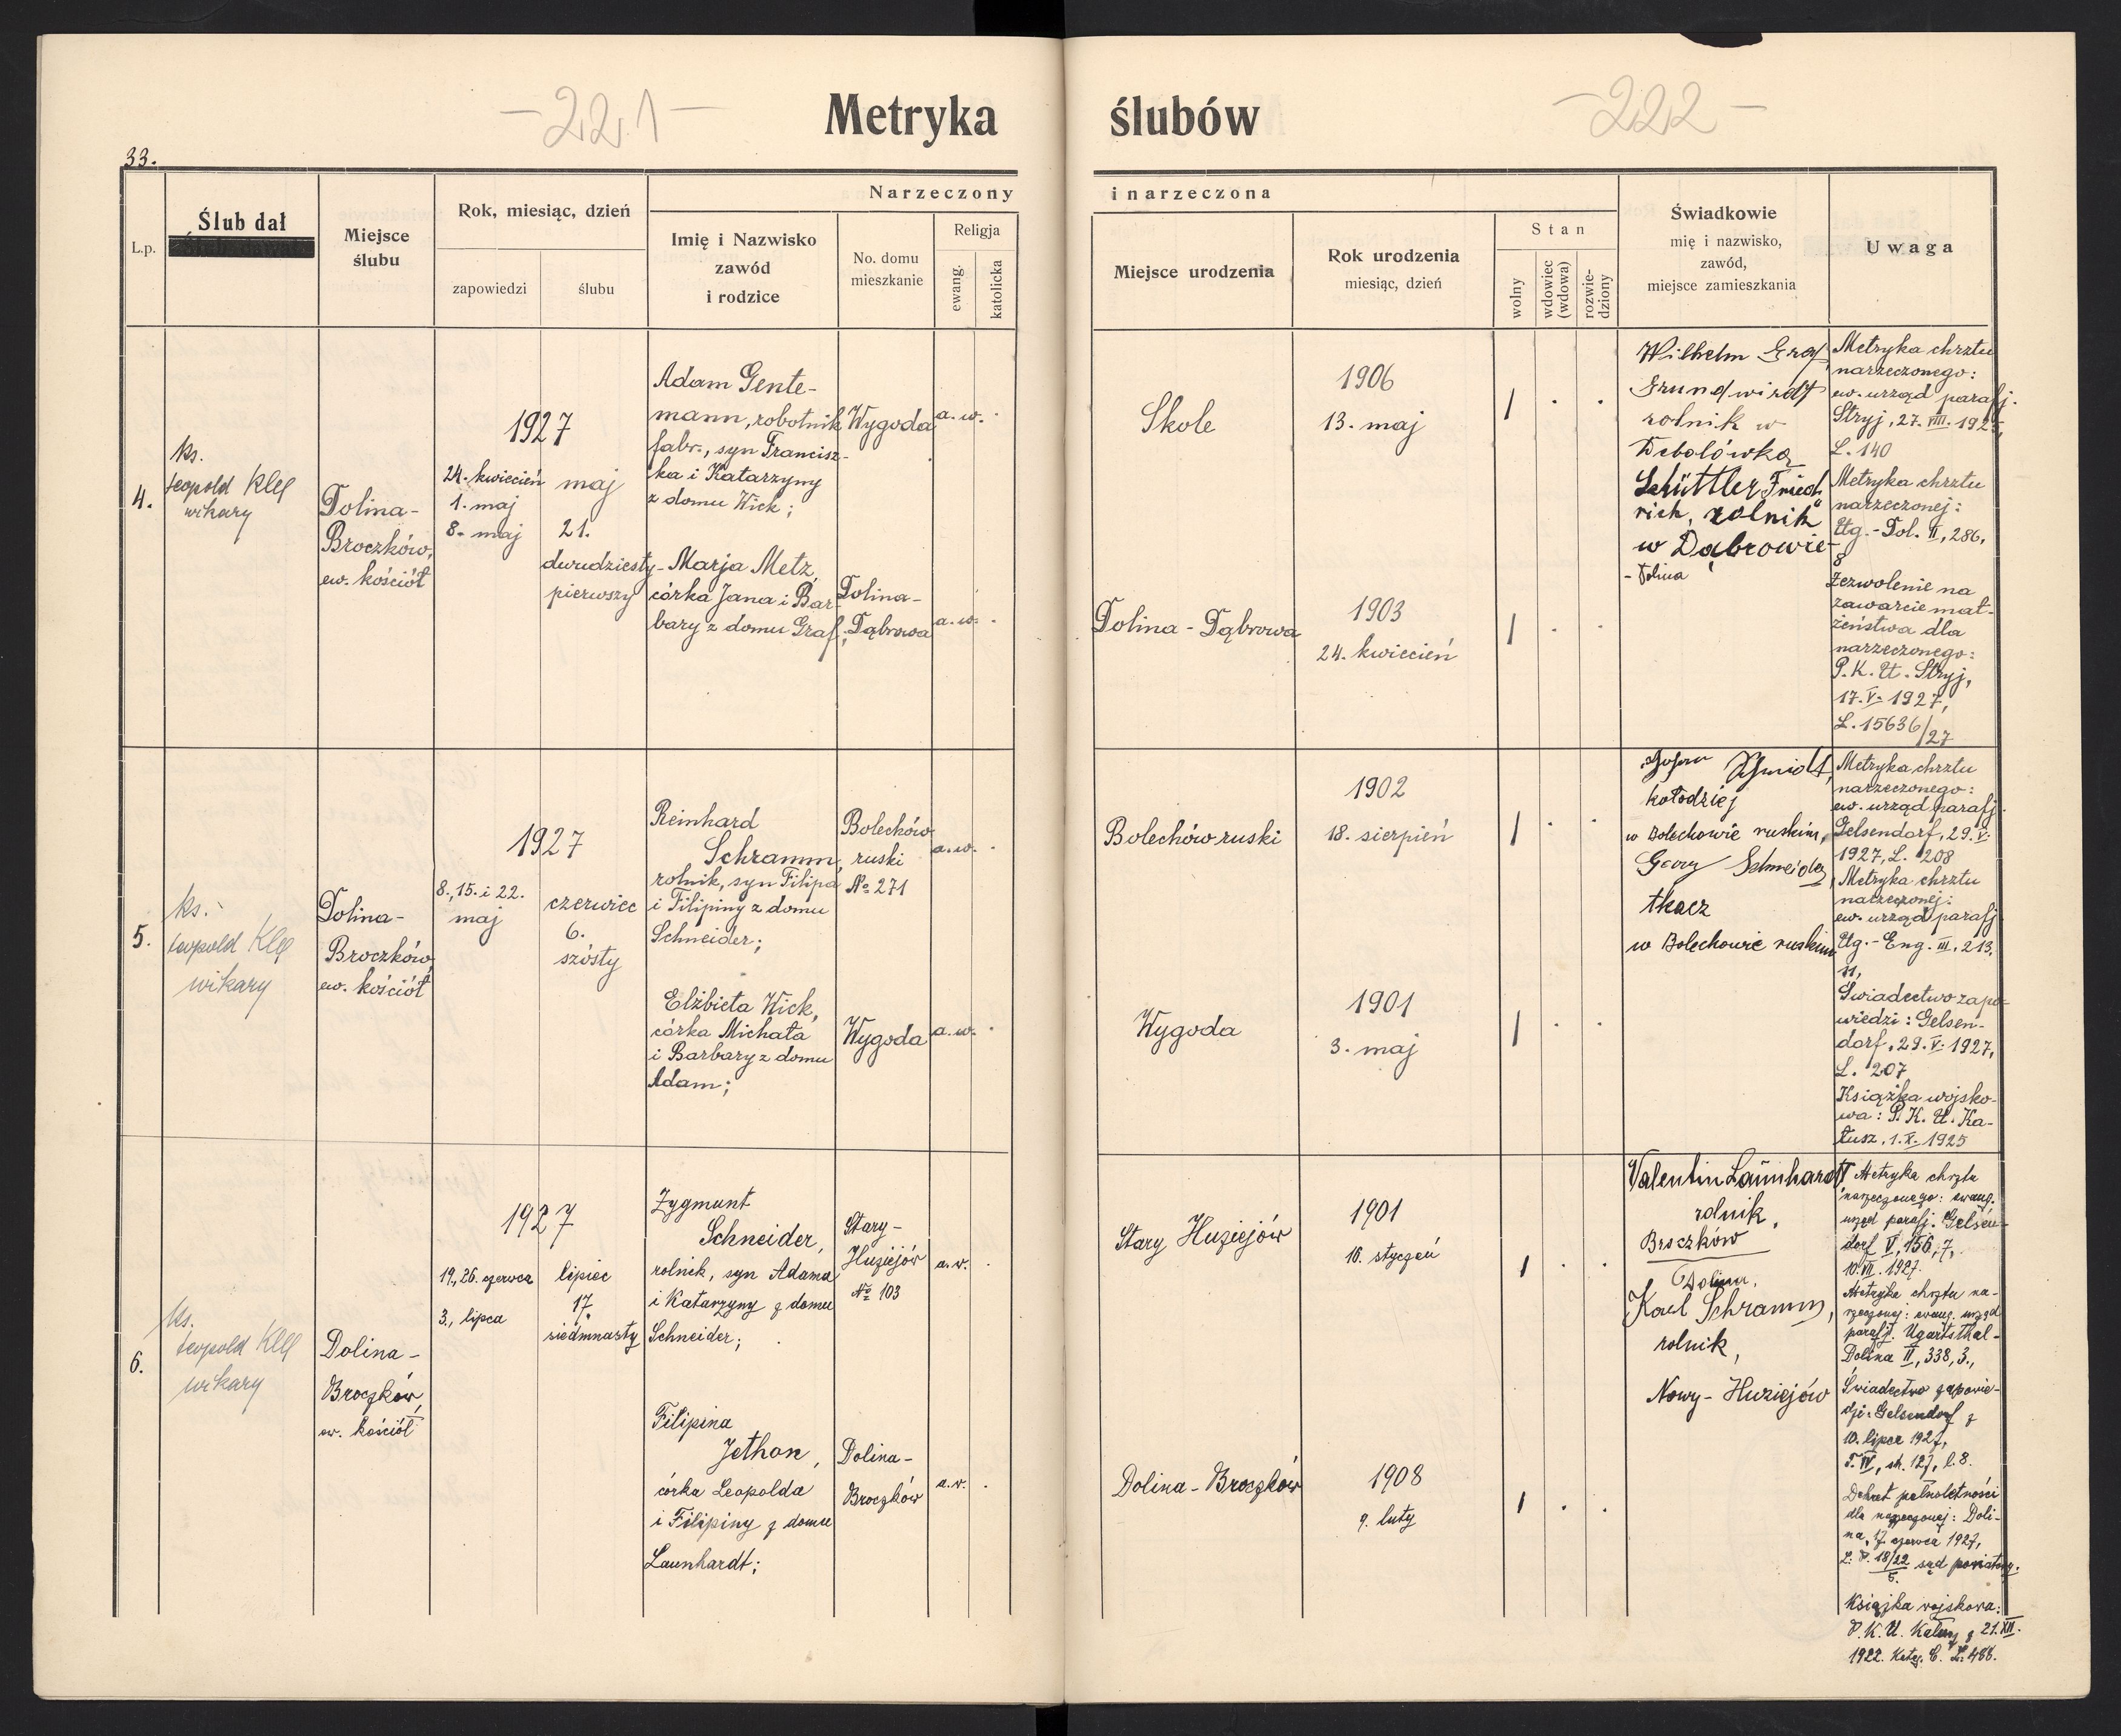 - 221 -
Metryka
33.
L.p.
Ślub dał
Miejsce
ślubu
Rok, miesiąc, dzień
zapowiedzi
ślubu
Narzeczony
Imię i Nazwisko
zawód
i rodzice
No. domu
mieszkanie
Religja
ewang.
katolicka
4.
ks.
Leopold Klee
wikary
Dolina-
Broczków,
ew. kościół
1927
24. kwiecień
1. maj
8. maj
maj
21.
dwudziesty-
pierwszy
Adam Gente-
mann, robotnik
fabr., syn Francisz-
ka i Katarzyny
z domu Wick;
Wygoda
a. w. ·
Marja Metz,
córka Jana i Bar-
bary z domu Graf;
Dolina-
Dąbrowa
a. w. ·
5.
ks.
Leopold Klee
wikary
Dolina-
Broczków,
ew. kościół
1927
8., 15. i 22.
maj
czerwiec
6.
szósty
Reinhard
Schramm,
rolnik, syn Filipa
i Filipiny z domu
Schneider;
Bolechów
ruski
No 271
a. w. ·
Elżbieta Wick,
córka Michała
i Barbary z domu
Adam;
Wygoda
a. w. ·
6.
ks.
Leopold Klee
wikary
Dolina-
Broczków,
ew. kościół
1927
19., 26. czerwca
3., lipca
lipiec
17.
siedmnasty
Zygmunt
Schneider,
rolnik, syn Adama
i Katarzyny z domu
Schneider;
Stary-
Huziejów
No 103
a. w. ·
Filipina
Jethon,
córka Leopolda
i Filipiny z domu
Launhardt;
Dolina-
Broczków
a. w. ·
- 222 -
ślubów
i narzeczona
Miejsce urodzenia
Rok urodzenia
miesiąc, dzień
Stan
wolny
wdowiec
(wdowa)
rozwie-
dziony
Świadkowie
mię i nazwisko,
zawód,
miejsce zamieszkania
Uwaga
Skole
1906
13. maj
1 · ·
Dolina - Dąbrowa
1903
24. kwiecień
1 · ·
Wilhelm Graf,
Grundwirdt
rolnik w
Debolówka
Schüttler Fried
rich, rolnik
w Dąbrowie-
- Dolina
Metryka chrztu
narzeczonego:
ew. urząd parafj.
Stryj, 27. VIII. 1925,
L. 140
Metryka chrztu
narzeczonej:
Ug.-Dol. II, 286,
8
Zezwolenie na
zawarcie mał-
żeństwa dla
narzeczonego:
P. K. U. Stryj,
17. V. 1927,
L. 15636/27
Bolechów ruski
1902
18. sierpień
1 · ·
Wygoda
1901
3. maj
1 · ·
Schmidt,
kołodziej
w Bolechowie ruskim,
Georg Schneider,
tkacz
w Bolechowie ruskim
Metryka chrztu
narzeczonego:
ew. urząd parafj.
Gelsendorf, 29. V.
1927, L. 208
Metryka chrztu
narzeczonej:
ew. urząd parafj.
Ug.-Eng. III, 213,
11,
Świadectwo zapo-
wiedzi: Gelsen-
dorf, 29. V. 1927,
L. 207
Książka wojsko-
wa: P. K. U. Ka-
łusz, 1. X. 1925
Stary Huziejów
1901
16. styczeń
1 · ·
Dolina - Broczków
1908
9. luty
1 · ·
Valentin Launhardt
rolnik,
Broczków
Dolina.
Karl Schramm,
rolnik,
Nowy - Huziejów
Metryka chrztu
narzeczonego: ewang.
urząd parafj. Gelsen-
dorf V, 156, 7,
10. VII. 1927.
Metryka chrztu na-
rzeczonej: ewang. urząd
parafj. Ugartsthal-
Dolina II, 338, 3.,
Świadectwo zapowie-
dzi: Gelsendorf z
10. lipca 1927,
T. IV, str. 127, l. 8.
Dekret pełnoletności
dla narzeczonej: Doli-
na, 17. czerwca 1927,
L. P. 18/22 sąd powiatowy.
5.
Książka wojskowa:
P. K. U. Kałusz z 21. XII.
1922. Kateg. C. L. 488.